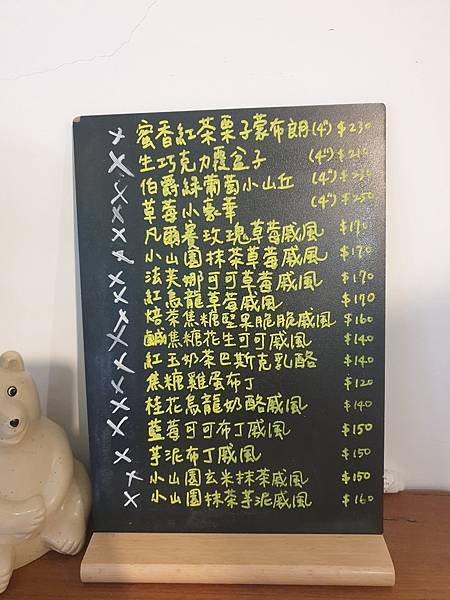 蜜香紅茶栗子蒙布朗(4") $230
生巧克力覆盆子 (4") $210
伯爵綠葡萄小山丘 (4")
草莓小豪華 (4") $250
凡爾賽玫瑰草莓戚風 $190
小山園抹茶草莓戚風 $170
法芙娜可可草莓戚風 $170
紅烏龍草莓戚風 $170
焙茶焦糖堅果脆脆戚風 $160
鹹焦糖花生可可戚風 $140
紅玉奶茶巴斯克乳酪 $140
焦糖雞蛋布丁 $120
桂花烏龍奶酪戚風 $140
藍莓可可布丁戚風 $150
芋泥布丁戚風 $150
小山園玄米抹茶戚風 $150
小山園抹茶芋泥戚風 $160